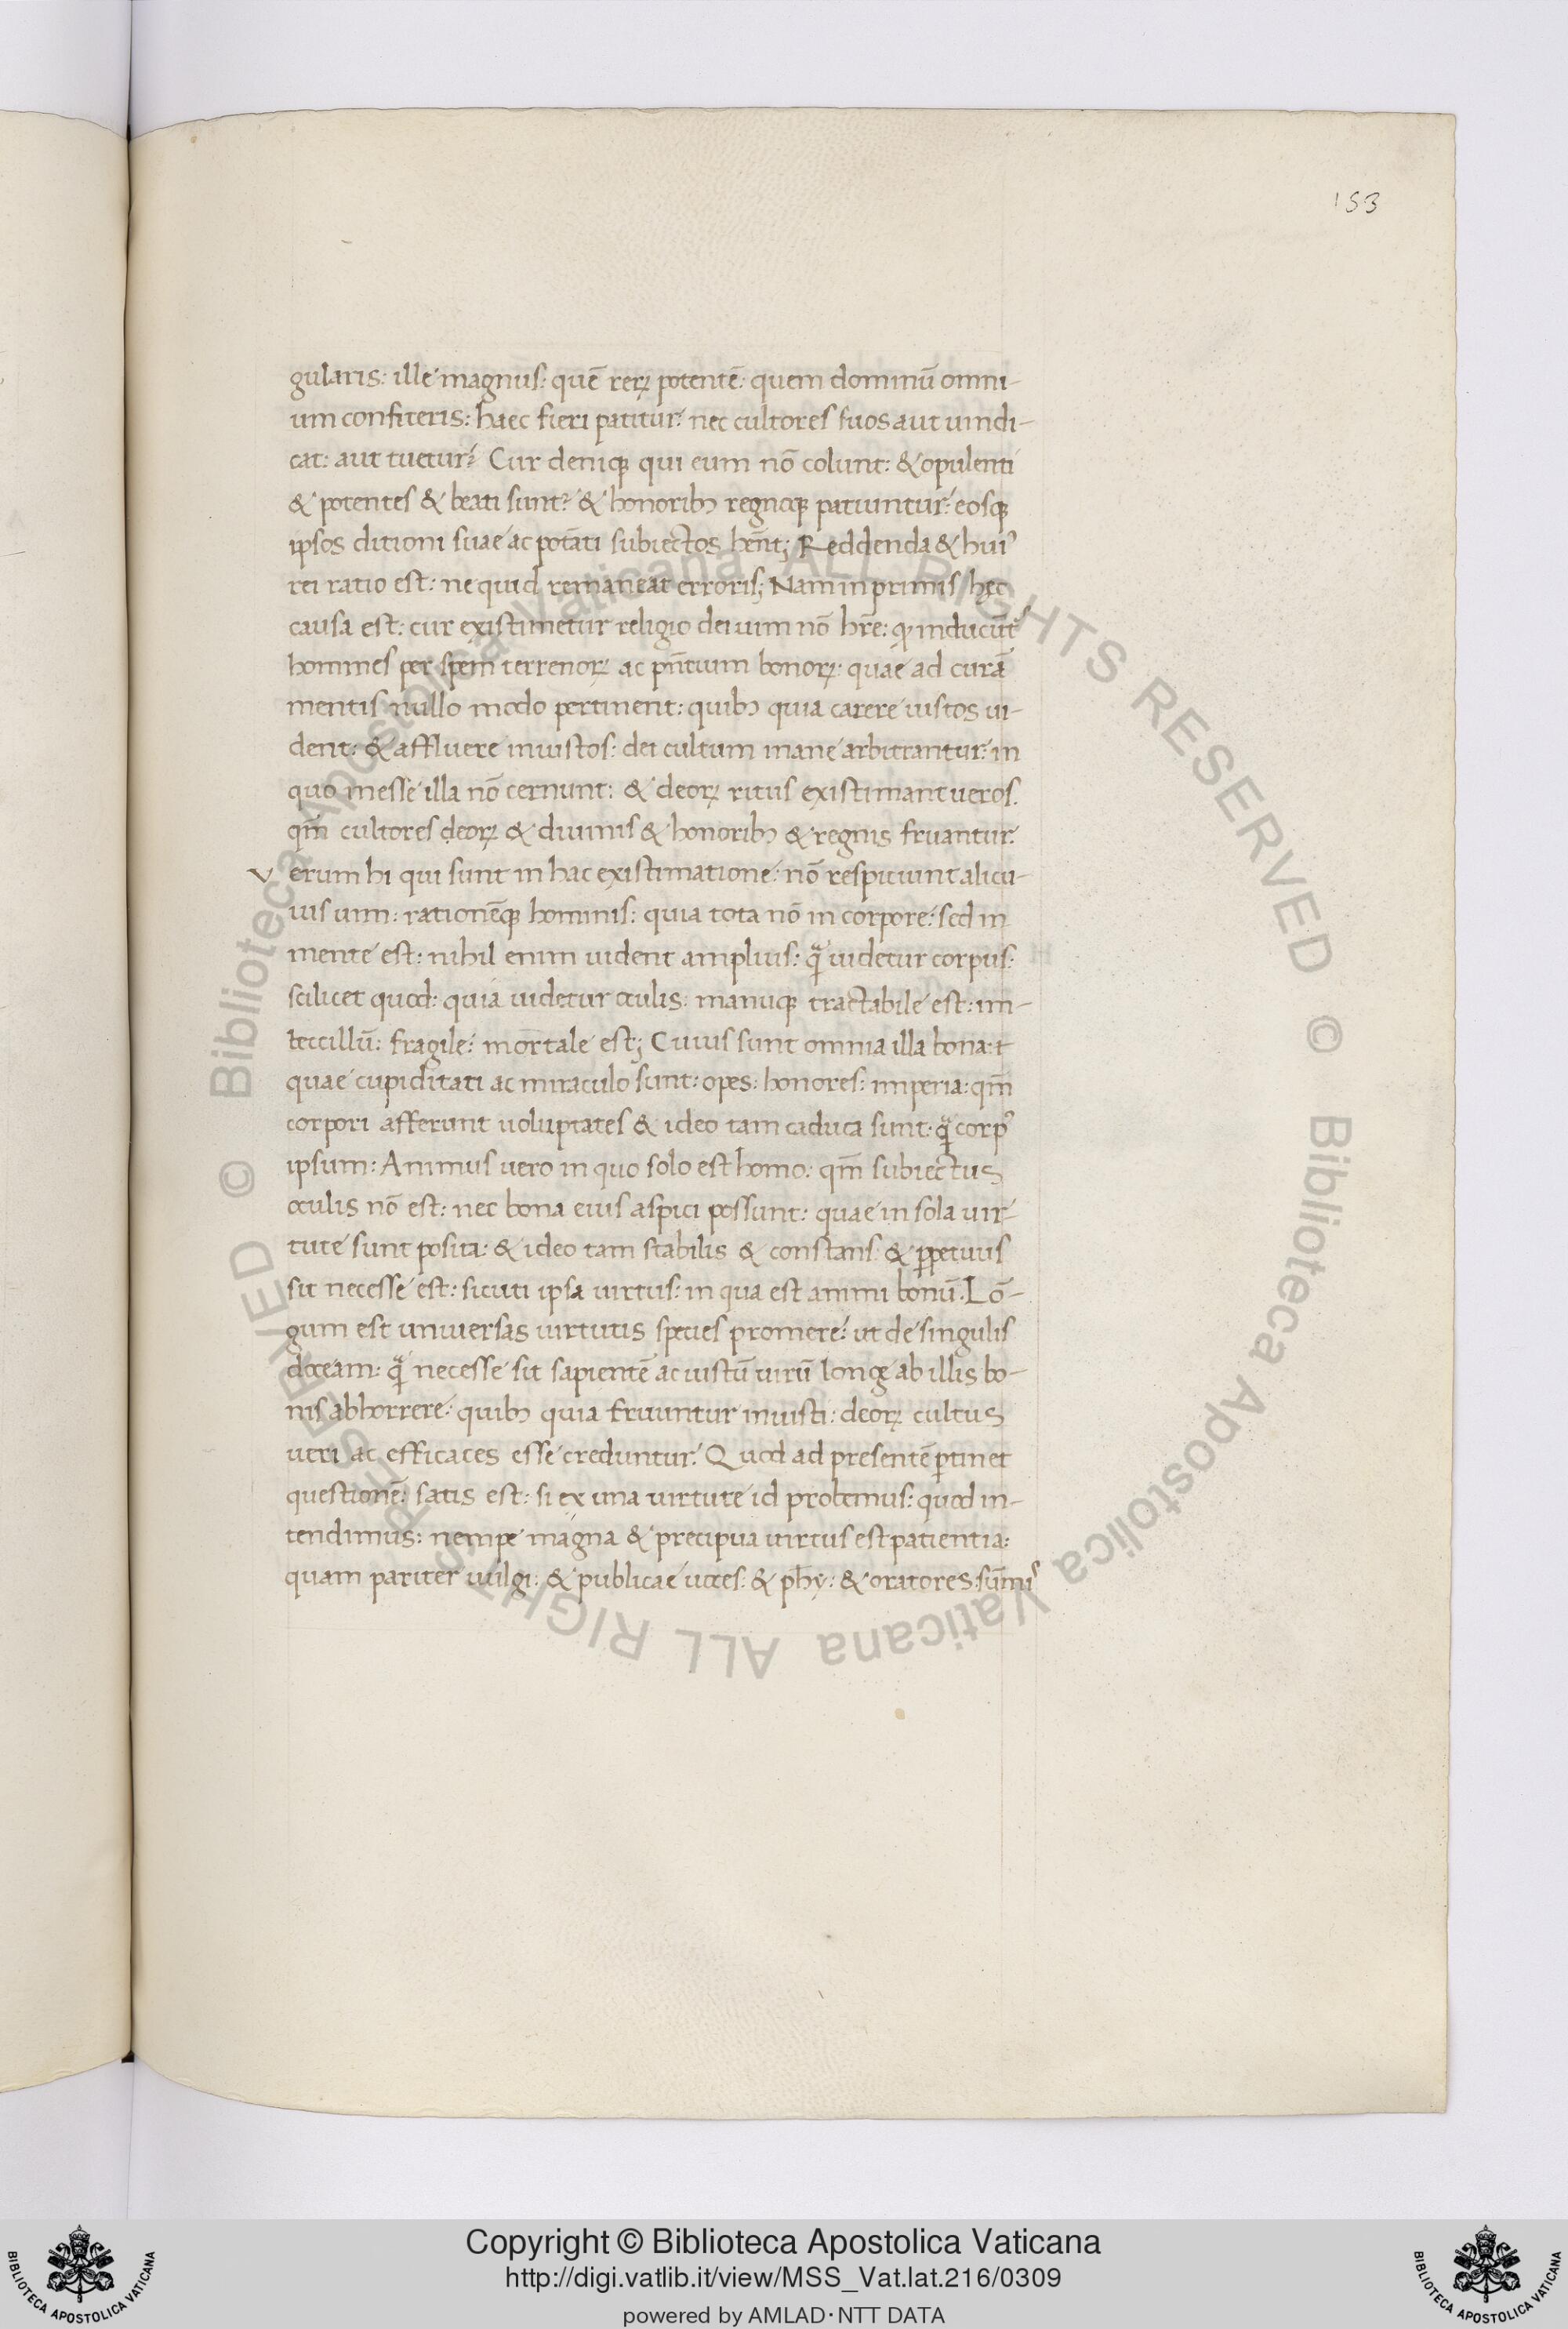 153
gularis: ille magnus: quē rerꝝ potentē: quem dominū omni-
um confiteris: haec fieri patitur: nec cultores suos aut uindi-
cat: aut tuetur? Cur deniqꝫ qui eum nō colunt: & opulenti
& potentes & beati sunt? & honoribꝫ regnoqꝫ patiuntur: eosqꝫ
ipsos ditioni suae ac potāti subiectos hēnt; Reddenda & huiꝰ
rei ratio est: ne quid remaneat erroris; Nam in primis hęc
causa est: cur existimetur religio dei uim nō hr̄e: ꝙ inducūtꝰ
homines per spem terrenorꝝ ac pn̄tium bonorꝝ: quae ad curā
mentis nullo modo pertinent: quibꝫ quia carere iustos ui-
dent: & affluere iniustos: dei cultum inane arbitrantur: in
quo inesse illa nō cernunt: & deorꝝ ritus existimant ueros.
qm̄ cultores deorꝝ & diuinis & honoribꝫ & regnis fruantur.
Verum hi qui sunt in hac existimatione: nō respiciunt alicu-
ius uim: rationēqꝫ hominis: quia tota nō in corpore: sed in
mente est: nihil enim uident amplius: q̄ uidetur corpus:
scilicet quod: quia uidetur oculis: manuqꝫ tractabile est: im-
beccillū: fragile: mortale est; Cuius sunt omnia illa bona:t
quae cupiditati ac miraculo sunt: opes: honores: imperia: qm̄
corpori afferunt uoluptates & ideo tam caduca sunt: q̄ corpꝰ
ipsum: Animus uero in quo solo est homo: qm̄ subiectus
oculis nō est: nec bona eius aspici possunt: quae in sola uir-
tute sunt posita: & ideo tam stabilis & constans: & ꝑpetuus
sit necesse est: sicuti ipsa uirtus: in qua est animi bonū. Lō-
gum est uniuersas uirtutis species promere: ut de singulis
doceam: q̄ necesse sit sapientē ac iustū uirū longe ab illis bo-
nis abhorrere: quibꝫ quia fruuntur iniusti: deorꝝ cultus
ueri ac efficaces esse creduntur. Quod ad presentē ꝑtinet
questionē: satis est: si ex una uirtute id probemus: quod in-
tendimus: nempe magna & precipua uirtus est patientia:
quam pariter uulgi: & publicae uoces: & phӯ: & oratores sūmiˢ
© Biblioteca Apostolica Vaticana ALL RIGHTS RESERVED © Biblioteca Apostolica Vaticana ALL RIGHTS RESERVED
Copyright © Biblioteca Apostolica Vaticana
http://digi.vatlib.it/view/MSS_Vat.lat.216/0309
powered by AMLAD·NTT DATA
BIBLIOTECA APOSTOLICA VATICANA
BIBLIOTECA APOSTOLICA VATICANA